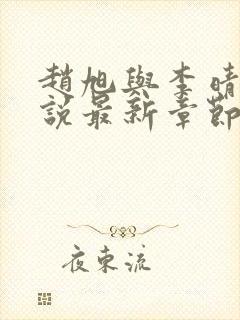 趙旭與李晴
說最新章節
夜東流